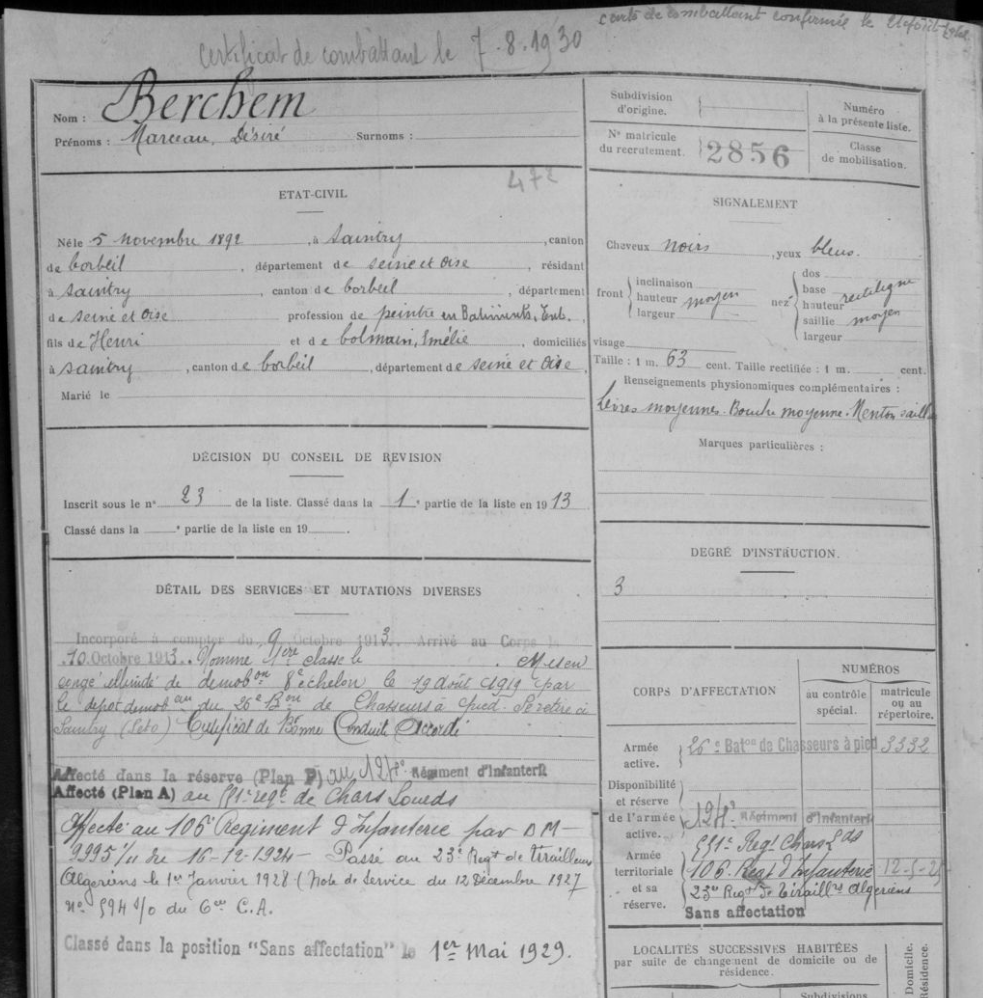 carte de combattant confirmée le
Certificat de combattant le 7.8.1930
Nom : Berchem
Prénoms : Marceau, Désiré Surnoms :
Subdivision d'origine.
Numéro à la présente liste.
N° matricule du recrutement. 2856
Classe de mobilisation.
472
ETAT-CIVIL
Né le 5 novembre 1892, à Saintry, canton
de Corbeil, département de Seine et Oise, résidant
à Saintry, canton de Corbeil, département
de Seine et Oise profession de peintre en Batiments, Ent.
fils de Henri et de Colmain, Emélie, domiciliés
à Saintry, canton de Corbeil, département de Seine et Oise,
Marié le
SIGNALEMENT
Cheveux noirs, yeux bleus.
front { inclinaison
hauteur moyen
largeur
nez { dos
base rectiligne
hauteur
saillie moyen
largeur
visage
Taille : 1 m. 63 cent. Taille rectifiée : 1 m. cent.
Renseignements physionomiques complémentaires :
Lèvres moyennes. Bouche moyenne. Menton saill
Marques particulières :
DÉCISION DU CONSEIL DE REVISION
Inscrit sous le n° 23 de la liste. Classé dans la 1e partie de la liste en 1913
Classé dans la e partie de la liste en 19
DEGRÉ D'INSTRUCTION.
3
DÉTAIL DES SERVICES ET MUTATIONS DIVERSES
Incorporé à compter du 9 Octobre 1913. Arrivé au Corps le
10 Octobre 1913. Nommé 1ère classe le . Mis en
congé illimité de démobon 8e échelon le 19 Août 1919 par
le dépôt démobeur du 26e Bon de Chasseurs à pied. Se retire à
Saintry (Seto) Certificat de Bonne Conduite Accordé
Affecté dans la réserve (Plan P) au 124e Régiment d'Infanterie
Affecté (Plan A) au 551e régt de Chars Lourds
Affecté au 106e Régiment d'Infanterie par DM
9995/11 du 16-12-1924 - Passé au 23e Regt de Tirailleurs
Algériens le 1er Janvier 1928 (Note de Service du 12 Décembre 1927
N° 594 S/O du 6eme C.A.
Classé dans la position "Sans affectation" le 1er Mai 1929.
CORPS D'AFFECTATION
NUMÉROS
au contrôle spécial.
matricule ou au répertoire.
Armée active. { 26e Baton de Chasseurs à pied 3332
Disponibilité et réserve de l'armée active. { 124e Régiment d'Infanterie
551e Regt Chars Lds
Armée territoriale et sa réserve. { 106e Regt d'Infanterie 12-5-25
23eme Regt de Tiraillrs Algériens
Sans affectation
LOCALITÉS SUCCESSIVES HABITÉES
par suite de changement de domicile ou de
résidence.
Domicile.
Résidence.
Subdivisions